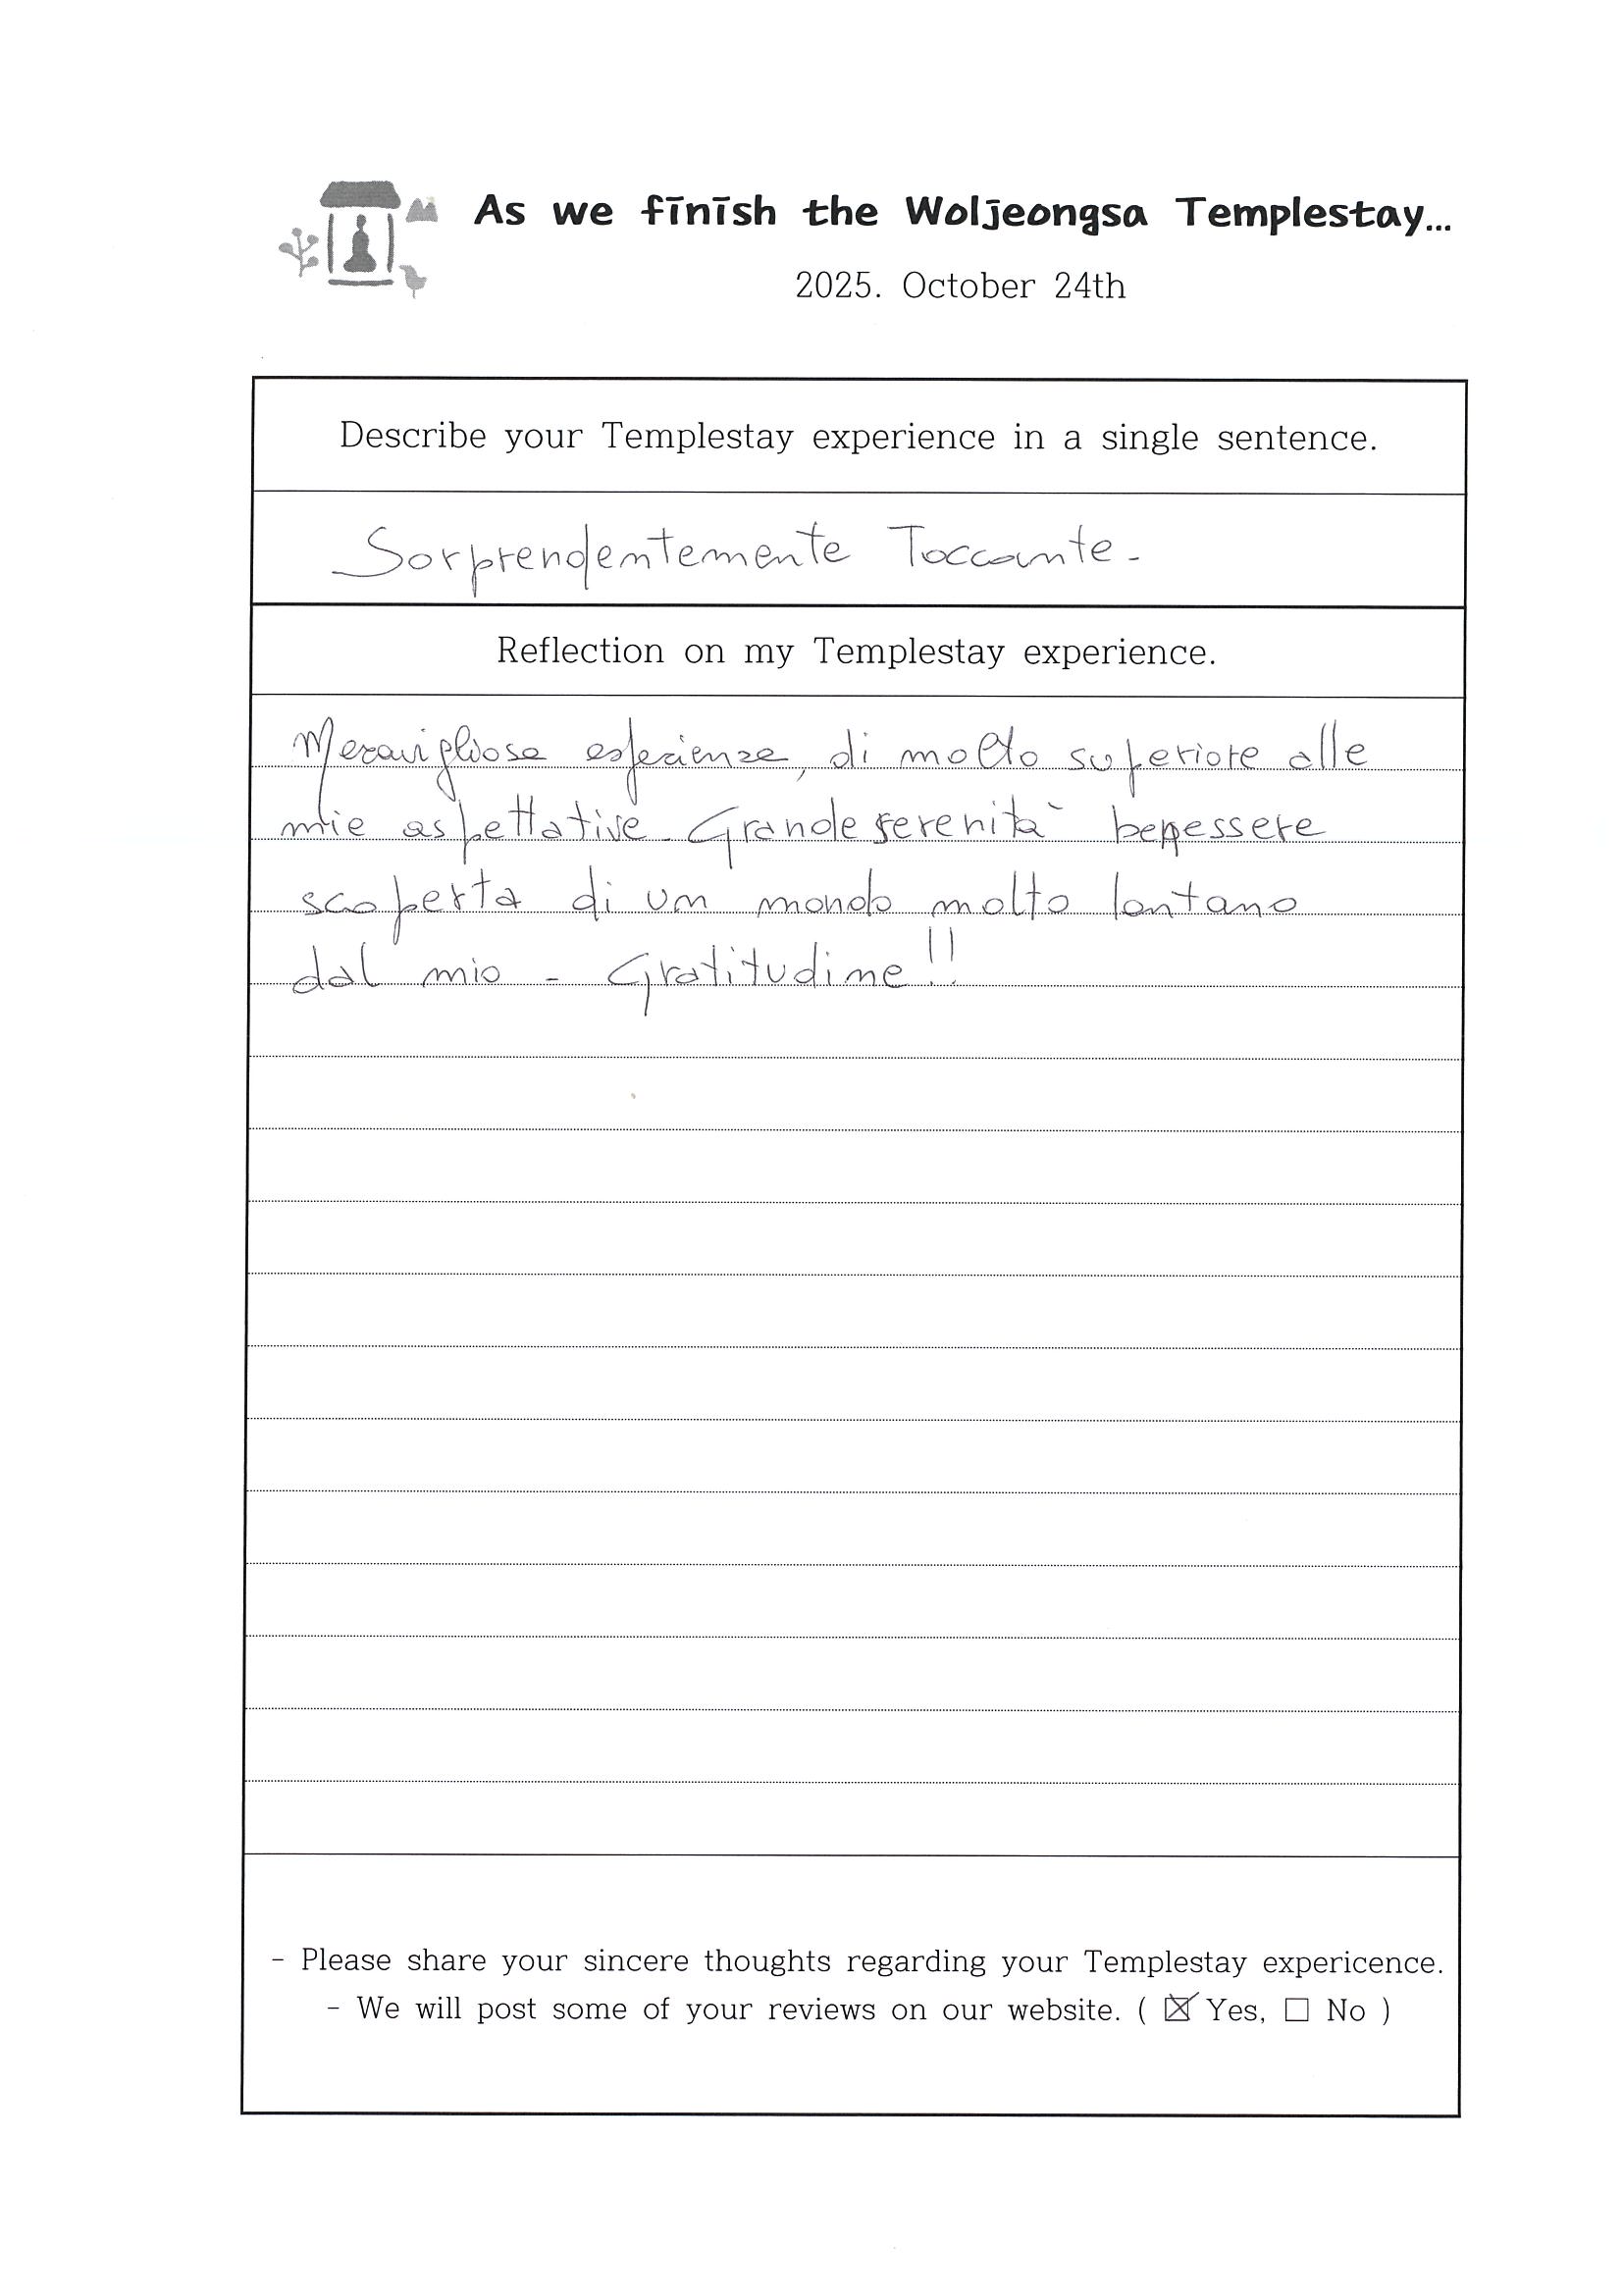 As we finish the Woljeongsa Templestay...
2025. October 24th
Describe your Templestay experience in a single sentence.
Sorprendentemente Toccante -
Reflection on my Templestay experience.
Meravigliosa esperienza, di molto superiore alle
mie aspettative - Grande serenità benessere
scoperta di un mondo molto lontano
dal mio - Gratitudine!!
- Please share your sincere thoughts regarding your Templestay expericence.
- We will post some of your reviews on our website. ( ☒ Yes, ☐ No )